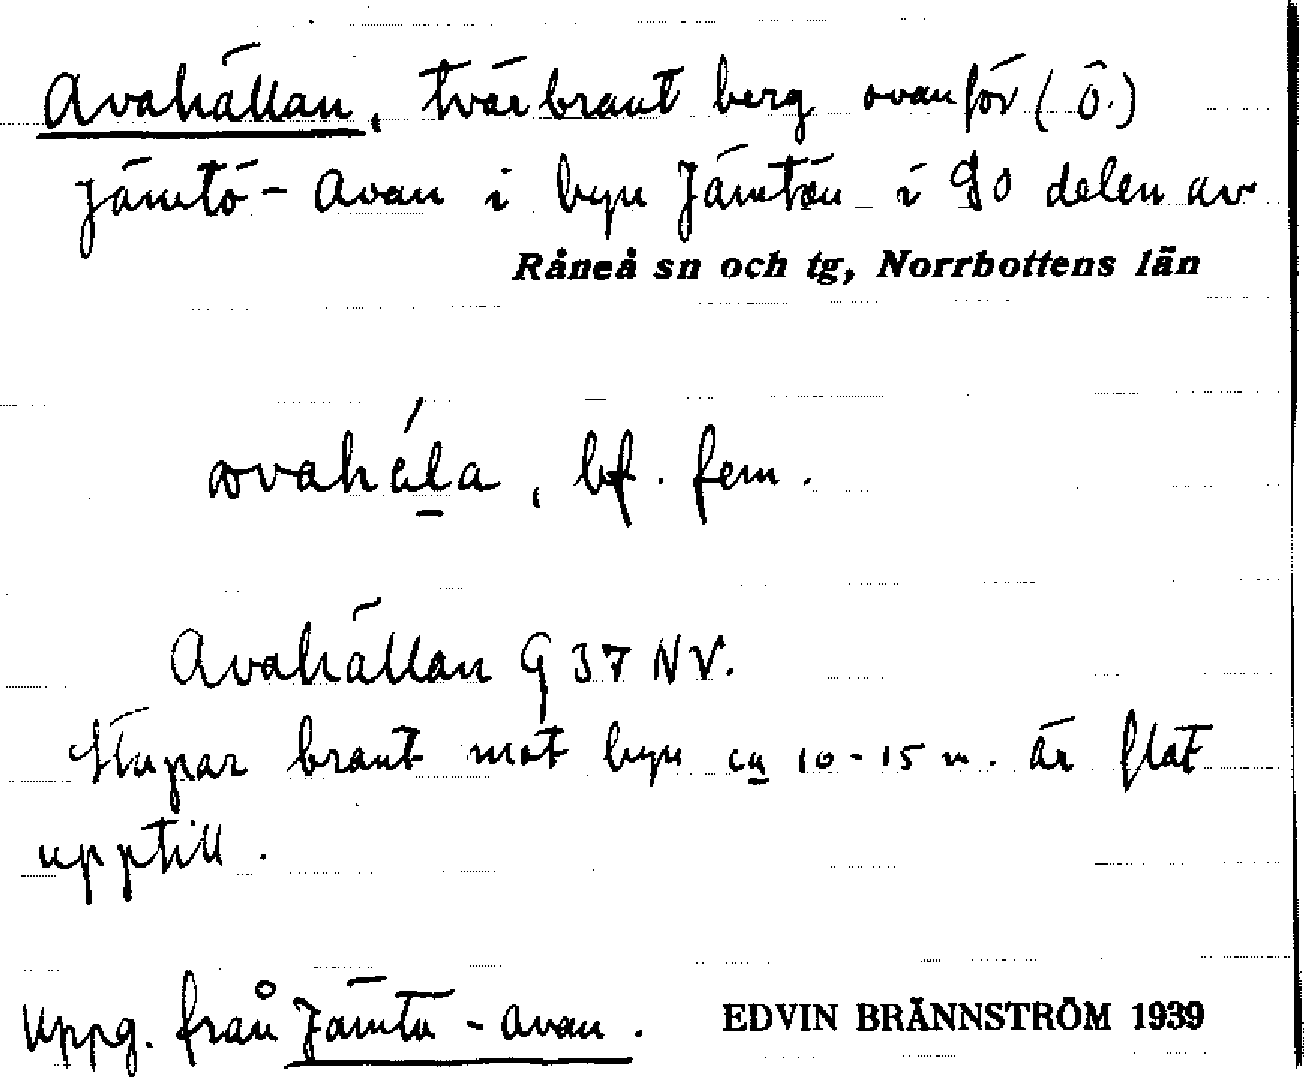 Avahällan, tvärbrant berg ovanför (Ö.)
Jämtö-Avan i byn Jämtön i SO delen av
Råneå sn och tg, Norrbottens län
avahä́l̲a, bf. fem.
Avahällan G 37 NV.
Stupar brant mot byn ca 10-15 m. är flat
upptill.
Uppg. från Jämtö-Avan.
EDVIN BRÄNNSTRÖM 1939